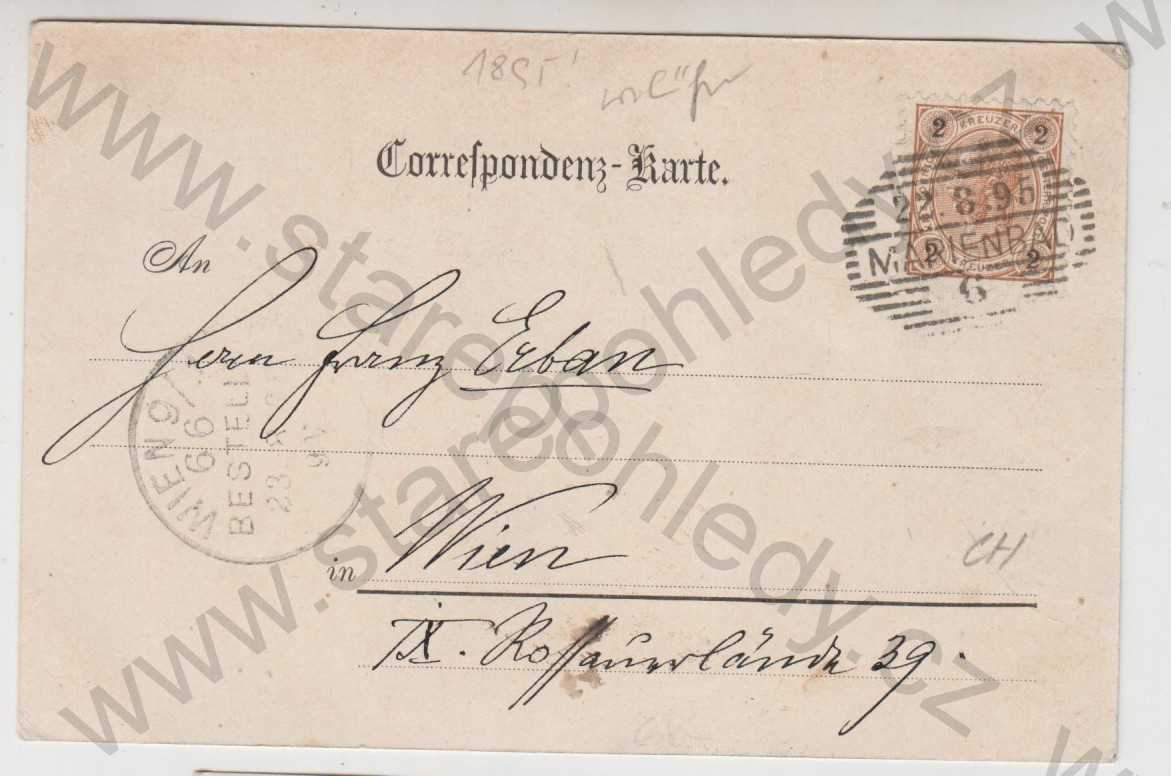 1895
Correspondenz-Karte.
2 KREUZER 2
22.8.95
MARIENBAD
2 KREUZER 2
6
An
Herrn Franz Erban
WIEN 9/
66
BESTELL
23
Wien
in
CH
IX. Rossauerlände 39.
www.starepohledy.cz
www.starepohledy.cz